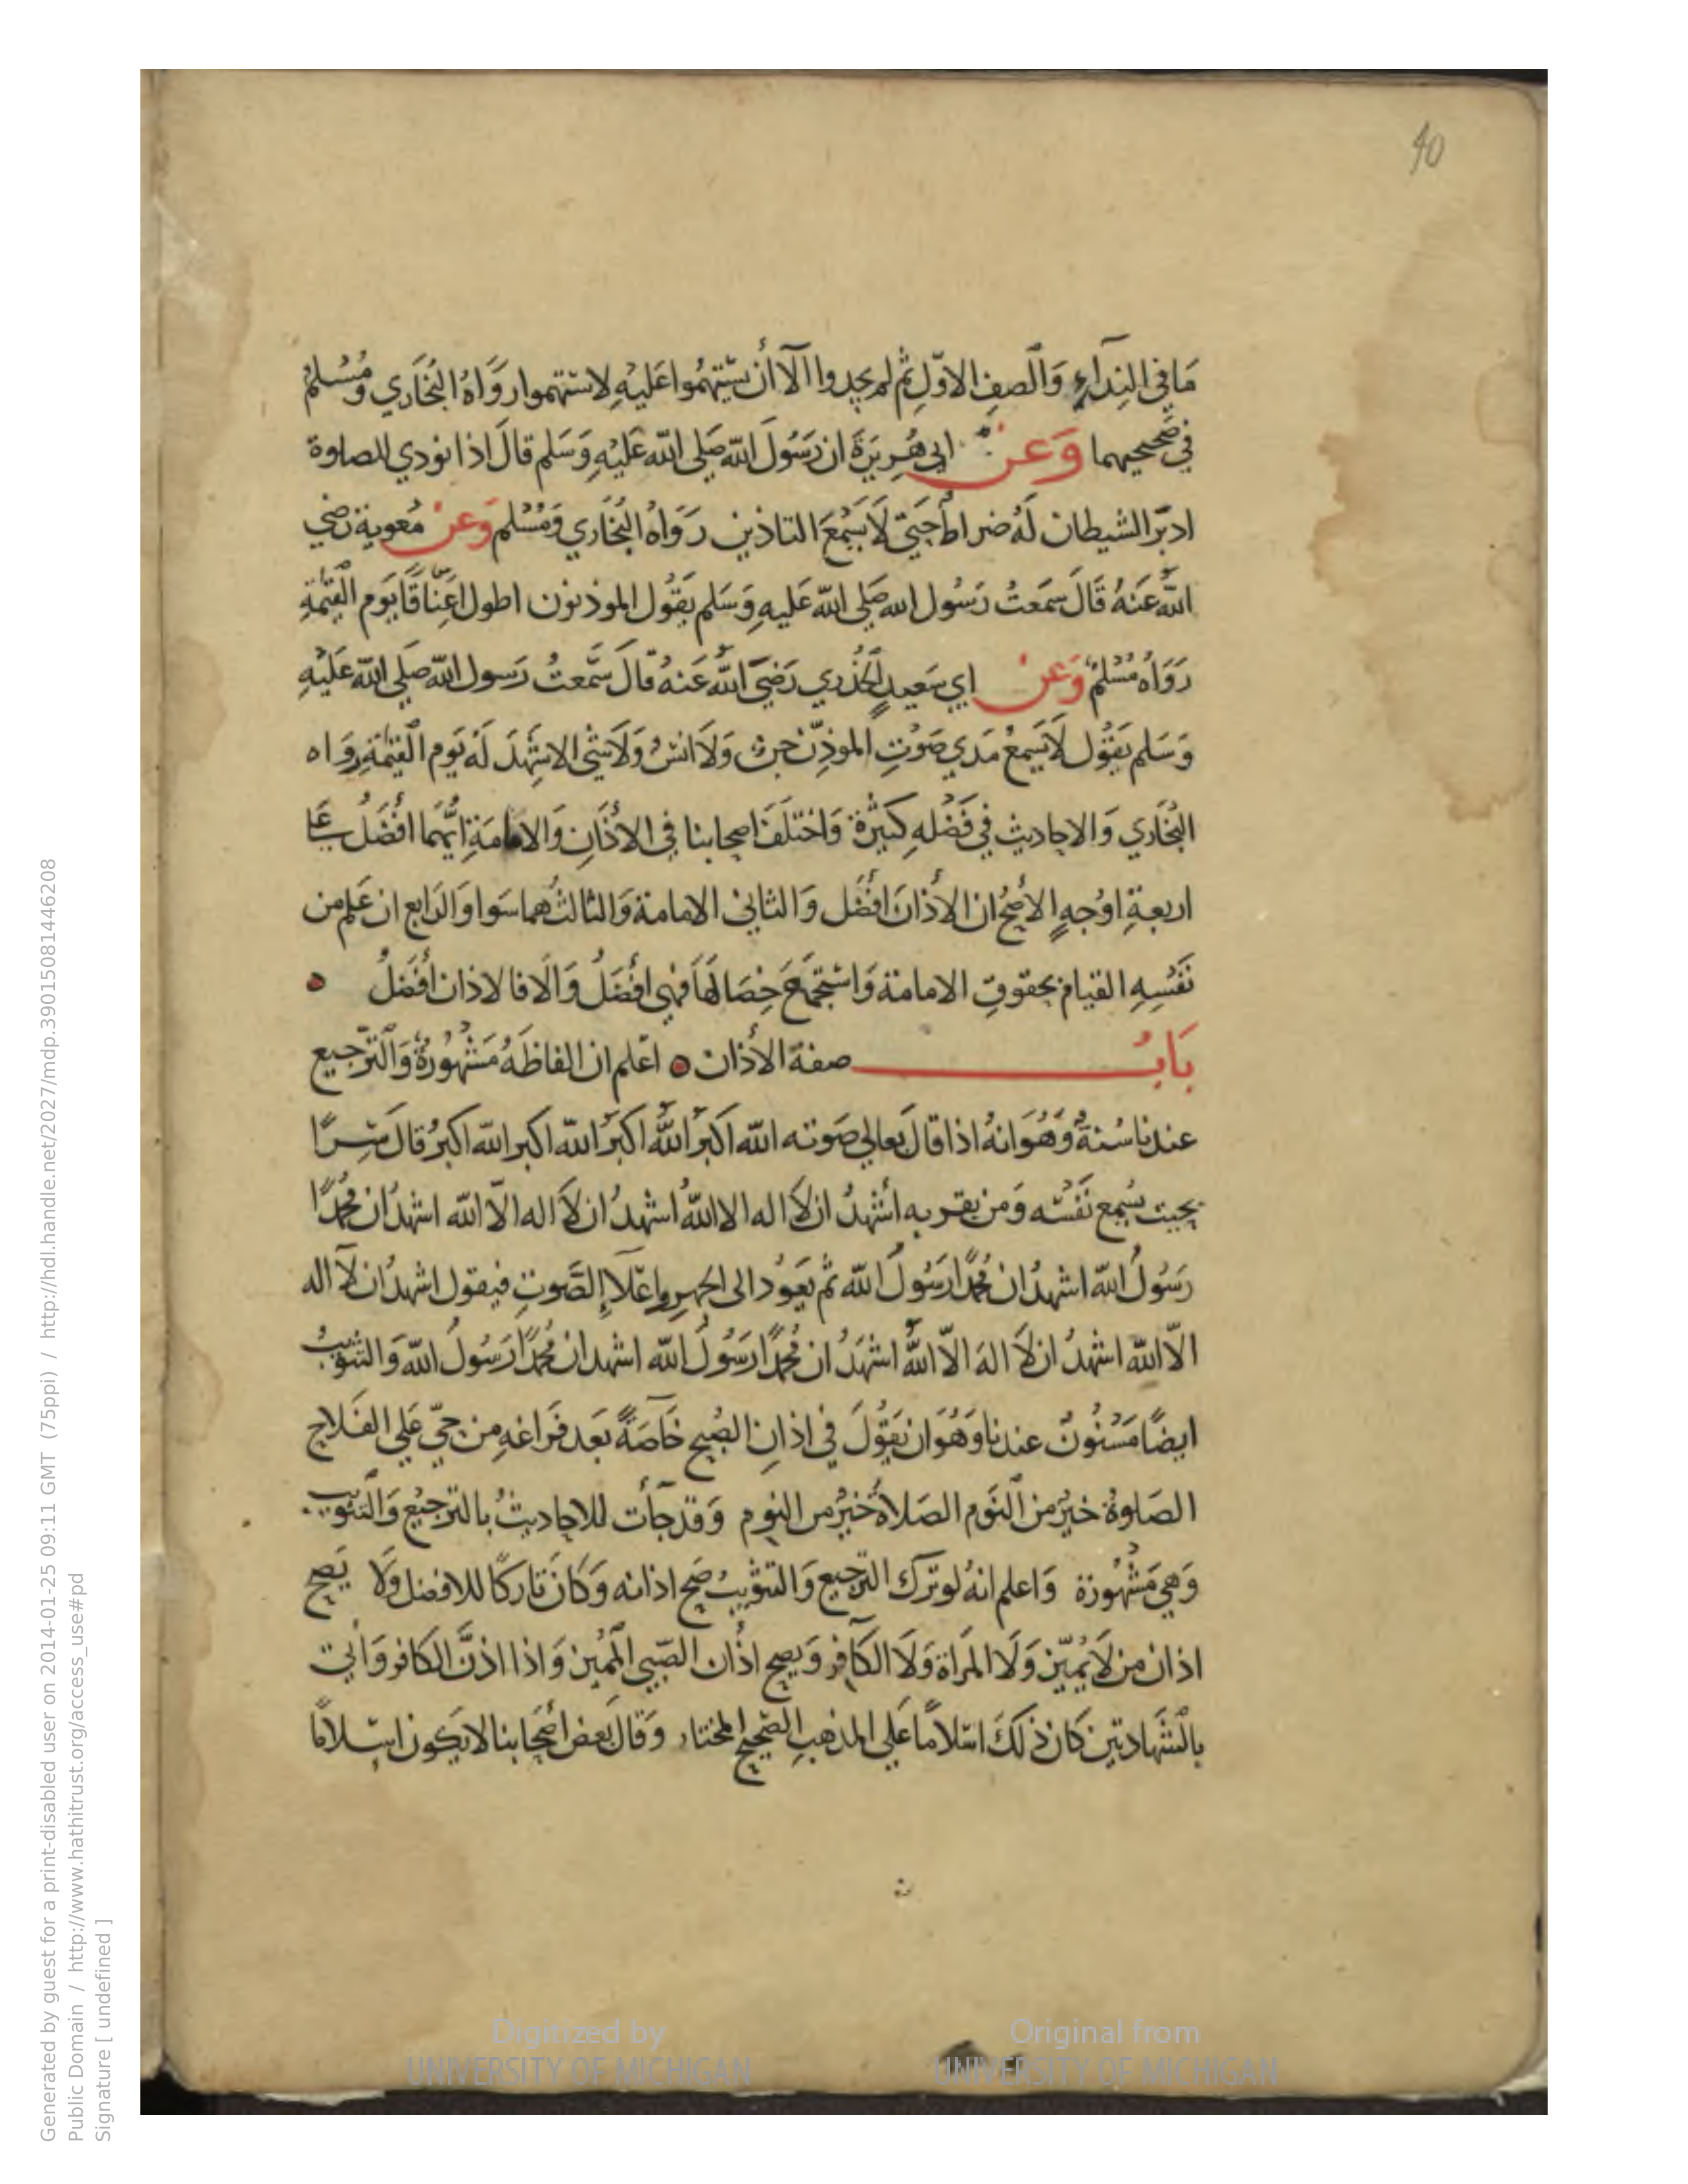 40
مَا في النِدَآءِ وَالصفِ الاوّلِ ثم لم يجدوا الآ أن يَسْتهمُوا عَليْهِ لاستهموا رَوَاهُ البُخَاري وَمُسْلم
في صَحيحيهما وَعَن ابي هُرِيَرَةَ ان رَسُولَ اللّه صَلي اللّه عَليْهِ وَسَلم قالَ اذا نودي للصلوة
ادبَرَ الشيطان لَهُ ضراط حَتيّ لَا يَسْمَعَ التاذين رَوَاهُ البُخَاري وَمُسْلم وَعنْ مُعوية رَضي
اللّهُ عَنهُ قَالَ سَمَعتُ رَسُول الله صَلي اللّه عَليهِ وَسَلم يَقُول الموذنون اطول اَعنَاقًا يَوم القيٰمةِ
رَوَاهُ مُسْلمٌ وَعَن ابي سَعيدٍ الخُذري رَضيَ اللّهُ عَنهُ قالَ سَمعتُ رَسول اللّه صَلي اللّه عَليْهِ
وَسَلم يَقُول لَا يَسمعُ مَدي صَوْتِ الموذِّن جن وَلَا انسٌ وَلَا شي الا شهِدَ لَهُ يَوم القيٰمَةِ رواه
البُخَاري وَالاحاديث في فَضْلهِ كَثيْرَة وَاختلَفَ اصحابنا في الاذَانِ وَالامامَةِ ايُّهمَا افْضَلُ عَلي
اربعةِ اوْجهٍ الأصَحُ ان الأذانَ افْضَل وَالثاني الامامة وَالثالثُ هما سَوا وَالرَابع ان عَلم من
نَفْسِهِ القيام بحقوقِ الامامة وَاسْتجمعَ خِصَالهَا فَهي افْضَلُ وَالّا فالاذان أفْضَلُ
بَابُ صفة الأذان اعْلم ان الفاظَهُ مَشْهُورَةٌ وَالتّرجيع
عندنا سُنةٌ وَهُوَ انهُ اذا قالَ بعالي صَوته اللّه اكبرُ اللّهُ اكبرُ اللّه اكبر اللّه اكبرُ قالَ سِرًّا
بحيث يُسْمع نَفْسَه وَمن بقربه أشهدُ ان لَا اله الا اللّهُ اشهدُ ان لَا اله الاّ اللّه اشهدُ ان مُحمدًا
رَسُولُ اللّه اشهدُ ان مُحمدًا رَسُولُ اللّه ثم يَعودُ الى الجهرِ واعْلاءِ الصَّوتِ فيقول اشهدُ ان لآ اله
الاّ اللّه اشهدُ ان لَا الهَ الاّ اللّهُ اشهَدُ ان مُحمدًا رَسُولُ اللّه اشهد ان مُحمدًا رَسُولُ اللّه وَالتثويبُ
ايضًا مَسْنُونٌ عندنا وَهُوَ ان يَقُولَ في اذانِ الصُبح خَآصَةً بَعد فَرَاغهِ من حَيّ عَلي الفَلاح
الصَلوةُ خيْرٌ من النَوم الصَلاةُ خَيْرٌ من النوم وَقد جَأت للاحاديثُ بالترجيْع وَالتثويب
وَهي مَشْهُورَة وَاعلم انهُ لو تَرك الترجيع وَالتثويبُ صَح اذانه وَكانَ تاركًا للافضل وَلَا يَصح
اذان من لَا يُميّز وَلَا المَرْاة وَلَا الكَافر وَيصح اذان الصَبي المُميز وَاذا اذنَّ الكافر وَأتي
بالشَهادتين كان ذلكَ اسْلامًا عَلي المذهبِ الصَحيح المختار وَقالَ بَعض أصْحَابنا لا يَكون اسْلامًا
Generated by guest for a print-disabled user on 2014-01-25 09:11 GMT (75ppi) / http://hdl.handle.net/2027/mdp.39015081446208
Public Domain / http://www.hathitrust.org/access_use#pd
Signature [ undefined ]
Digitized by
UNIVERSITY OF MICHIGAN
Original from
UNIVERSITY OF MICHIGAN